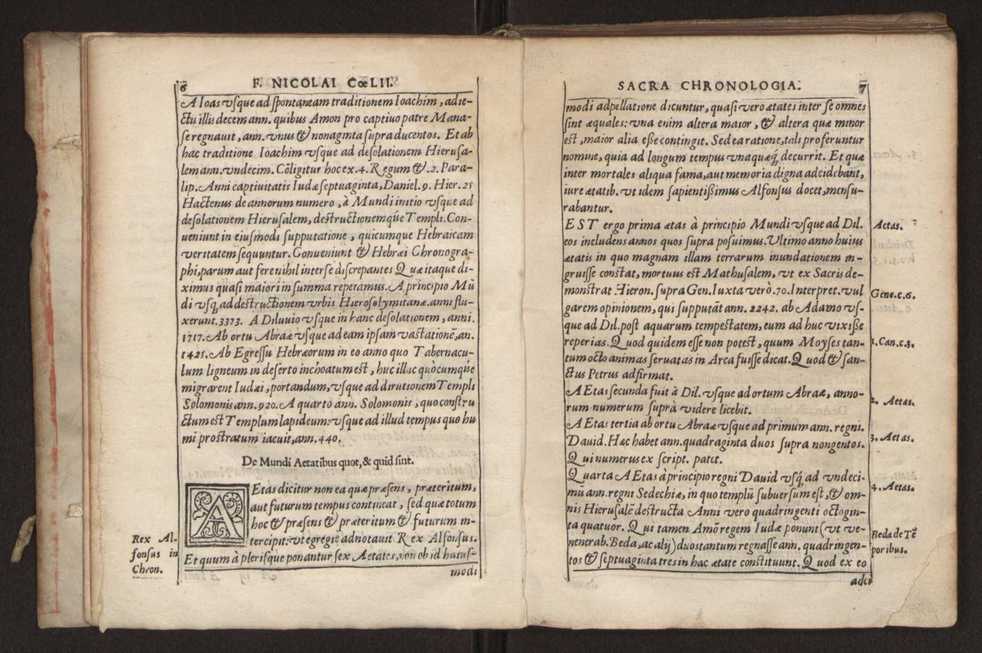 6
F. NICOLAI CœLII.
A Ioas vsque ad spontaneam traditionem Ioachim, adie-
ctu illis decem ann. quibus Amon pro captiuo patre Mana-
se regnauit, ann. vnus & nonaginta supra ducentos. Et ab
hac traditione Ioachim vsque ad desolationem Hierusa-
lem ann. vndecim. Cõligitur hoc ex. 4. Regum & .2. Para-
lip. Anni captiuitatis Iudæ septuaginta, Daniel. 9. Hier. 25
Hactenus de annorum numero, à Mundi initio vsque ad
desolationem Hierusalem, destructionemque Templi. Con-
ueniunt in eiusmodi supputatione, quicumque Hebraicam
veritatem sequuntur. Conueniunt & Hebræi Chronogra-
phi, parum aut fere nihil inter se discrepantes Quæ itaque di-
ximus quasi maiori in summa repetamus. A principio Mũ
di vsq; ad destructionem vrbis Hierosolymitanæ. anni flu-
xerunt. 3373. A Diluuio vsque in hanc desolationem, anni.
1717. Ab ortu Abraæ vsque ad eam ipsam vastationẽ, an.
1425. Ab Egressu Hebræorum in eo anno quo Tabernacu-
lum ligneum in deserto inchoatum est, huc illac quocumque
migrarent Iudæi, portandum, vsque ad dirutionem Templi
Solomonis ann. 920. A quarto ann. Solomonis, quo constru
ctum est Templum lapideum: vsque ad illud tempus quo hu
mi prostratum iacuit, ann. 440.
De Mundi Aetatibus quot, & quid sint.
AEtas dicitur non ea quæ præsens, præteritum,
aut futurum tempus contineat, sed quæ totum
hoc & præsens & præteritum & futurum in-
tercipit: vt egregiè adnotauit Rex Alfonsus.
Et quum à plerisque ponantur sex Aetates, non ob id huius-
modi
Rex Al-
fonsus in
Chron.
SACRA CHRONOLOGIA.
7
modi adpellatione dicuntur, quasi vero ætates inter se omnes
sint æquales: vna enim altera maior, & altera quæ minor
est, maior alia esse contingit. Sed ea ratione, tali proferuntur
nomine, quia ad longum tempus vnaquæq; decurrit. Et quæ
inter mortales aliqua fama, aut memoria digna adcidebant,
iure ætatib. vt idem sapientissimus Alfonsus docet, mensu-
rabantur.
EST ergo prima ætas à principio Mundi vsque ad Dil.
eos includens annos quos supra posuimus. Vltimo anno huius
ætatis in quo magnam illam terrarum inundationem in-
gruisse constat, mortuus est Mathusalem, vt ex Sacris de-
monstrat Hieron. supra Gen. Iuxta verò. 70. Interpret. vul
garem opinionem, qui supputãt ann. 2242. ab Adamo vs-
que ad Dil. post aquarum tempestatem, eum ad huc vixisse
reperias. Quod quidem esse non potest, quum Moyses tan-
tum octo animas seruatas in Arca fuisse dicat. Quod & san-
ctus Petrus adfirmat.
AEtas secunda fuit à Dil. vsque ad ortum Abraæ, anno-
rum numerum suprà videre licebit.
AEtas tertia ab ortu Abraæ vsque ad primum ann. regni.
Dauid. Hæc habet ann. quadraginta duos supra nongentos.
Qui numerus ex script. patet.
Quarta AEtas à principio regni Dauid vsq; ad vndeci-
mũ ann. regni Sedechiæ, in quo templũ subuersum est, & om-
nis Hierusalẽ destructa Anni vero quadringenti octogin-
ta quatuor. Qui tamen Amõ regem Iudæ ponunt (vt ve-
nenerab. Beda, ac alij) duos tantum regnasse ann. quadringen-
tos & septuaginta tres in hac ætate constituunt. Quod ex eo
adei
Aetas.
Gene. c. 6.
1. Can. c. 3.
2. Aetas.
3. Aetas.
4. Aetas.
Beda de Tẽ
poribus.